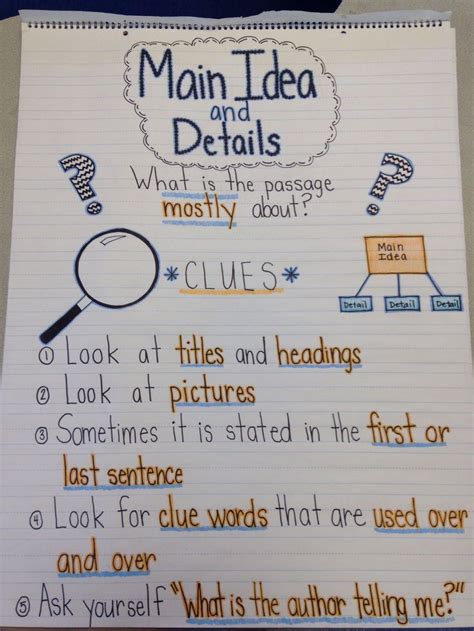 Main Idea
and
Details
What is the passage
mostly about?
*CLUES*
Main
Idea
Detail Detail Detail
① Look at titles and headings
② Look at pictures
③ Sometimes it is stated in the first or
last sentence
④ Look for clue words that are used over
and over
⑤ Ask yourself "What is the author telling me?"